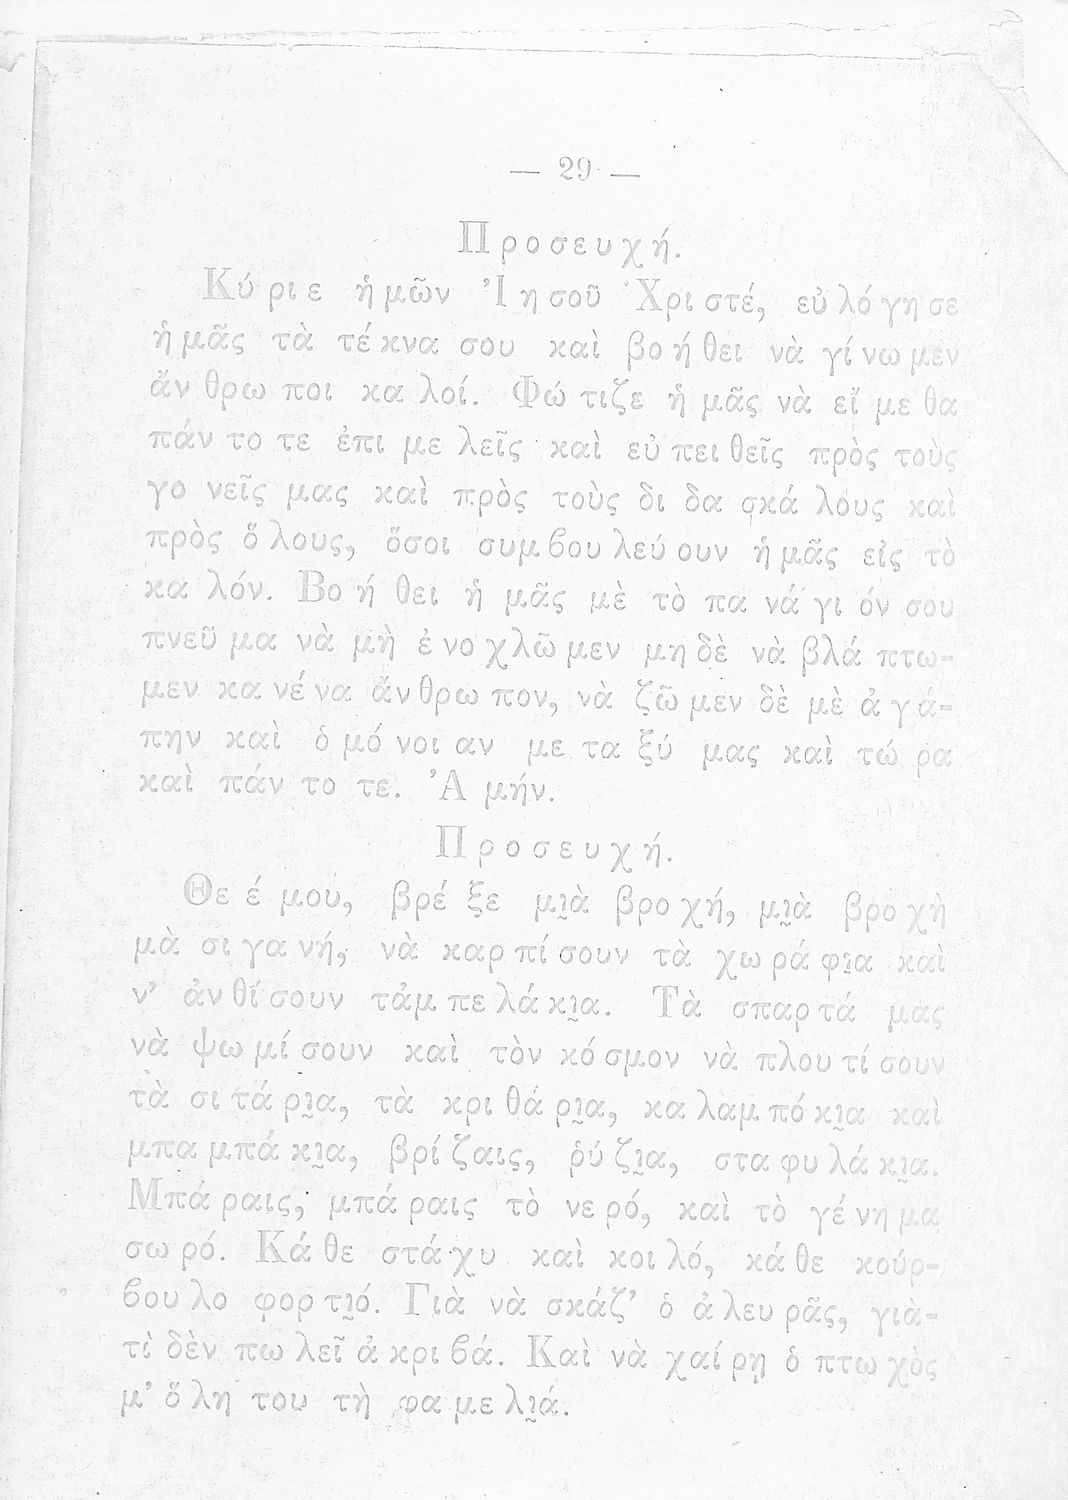 — 29 —
Προσευχή.
Κύ ρι ε ἡ μῶν Ἰ η σοῦ Χρι στέ, εὐ λό γη σε
ἡ μᾶς τὰ τέ κνα σου καὶ βο ή θει νὰ γί νω μεν
ἄν θρω ποι κα λοί. Φώ τι ζε ἡ μᾶς νὰ εἴ με θα
πάν το τε ἐπι με λεῖς καὶ εὐ πει θεῖς πρὸς τοὺς
γο νεῖς μας καὶ πρὸς τοὺς δι δα σκά λους καὶ
πρὸς ὅ λους, ὅσοι συμ βου λεύ ουν ἡ μᾶς εἰς τὸ
κα λόν. Βο ή θει ἡ μᾶς μὲ τὸ πα νά γι όν σου
πνεῦ μα νὰ μὴ ἐ νο χλῶ μεν μη δὲ νὰ βλά πτω-
μεν κα νέ να ἄν θρω πον, νὰ ζῶ μεν δὲ μὲ ἀ γά-
πην καὶ ὁ μό νοι αν με τα ξύ μας καὶ τώ ρα
καὶ πάν το τε. Ἀ μήν.
Προσευχή.
Θε έ μου, βρέ ξε μι̯ὰ βρο χή, μι̯ὰ βρο χὴ
μὰ σι γα νή, νὰ καρ πί σουν τὰ χω ρά φι̯α καὶ
ν’ ἀν θί σουν τἀμ πε λά κι̯α. Τὰ σπαρ τά μας
νὰ ψω μί σουν καὶ τὸν κό σμον νὰ πλου τί σουν
τὰ σι τά ρι̯α, τὰ κρι θά ρι̯α, κα λαμ πό κι̯α καὶ
μπα μπά κι̯α, βρί ζαις, ῥύ ζι̯α, στα φυ λά κι̯α.
Μπά ραις, μπά ραις τὸ νε ρό, καὶ τὸ γέ νη μα
σω ρό. Κά θε στά χυ καὶ κοι λό, κά θε κούρ-
βου λο φορ τι̯ό. Γιὰ νὰ σκάζ’ ὁ ἀ λευ ρᾶς, γιὰ-
τὶ δὲν πω λεῖ ἀ κρι βά. Καὶ νὰ χαί ρῃ ὁ πτω χὸς
μ’ ὅ λη του τὴ φα με λι̯ά.